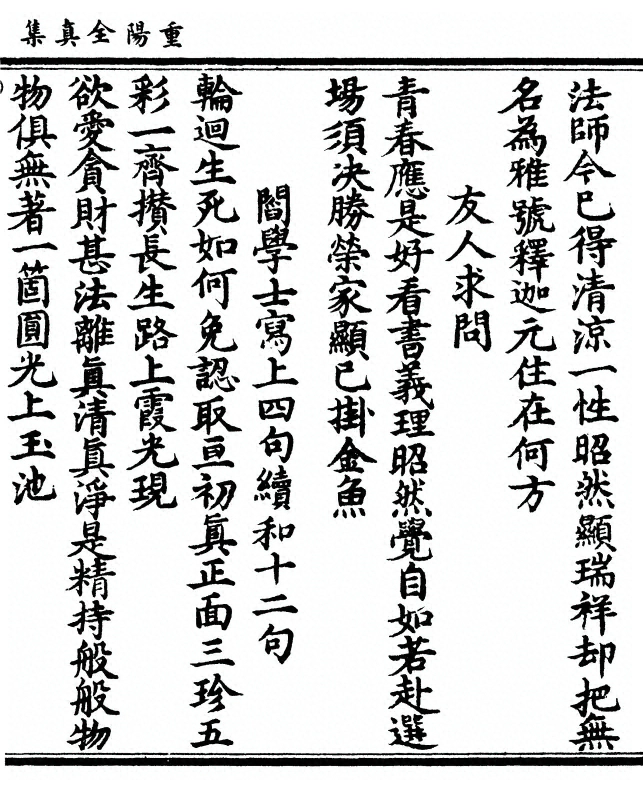 重陽全真集
法師今已得清涼一性昭然顯瑞祥却把無
名為雅號釋迦元住在何方
友人求問
青春應是好看書義理昭然覺自如若赴選
場須決勝榮家顯已掛金魚
閻學士寫上四句續和十二句
輪迴生死如何免認取亘初真正面三珍五
彩一齊攢長生路上霞光現
欲愛貪財甚法離真清真淨是精持般般物
物俱無著一箇圓光上玉池